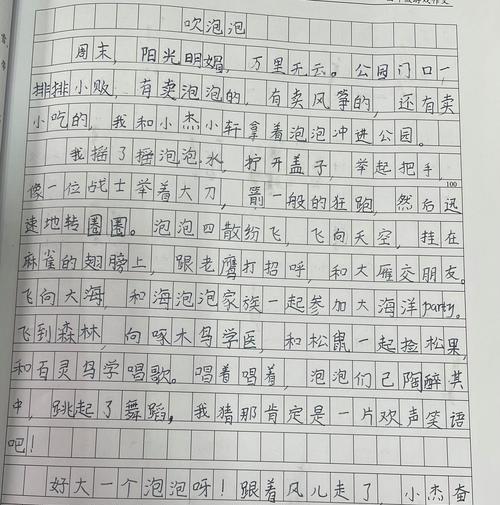 吹泡泡
周末，阳光明媚，万里无云。公园门口一
排排小贩，有卖泡泡的，有卖风筝的，还有卖
小吃的，我和小杰小轩拿着泡泡冲进公园。
我摇了摇泡泡水，拧开盖子，举起把手，
像一位战士举着大刀，箭一般的狂跑，然后迅
100
速地转圈圈。泡泡四散纷飞，飞向天空，挂在
麻雀的翅膀上，跟老鹰打招呼，和大雁交朋友。
飞向大海，和海泡泡家族一起参加大海洋party。
飞到森林，向啄木鸟学医，和松鼠一起捡松果，
和百灵鸟学唱歌。唱着唱着，泡泡们已陶醉其
中，跳起了舞蹈，我猜那肯定是一片欢声笑语
吧！
好大一个泡泡呀！跟着风儿走了，小杰奋